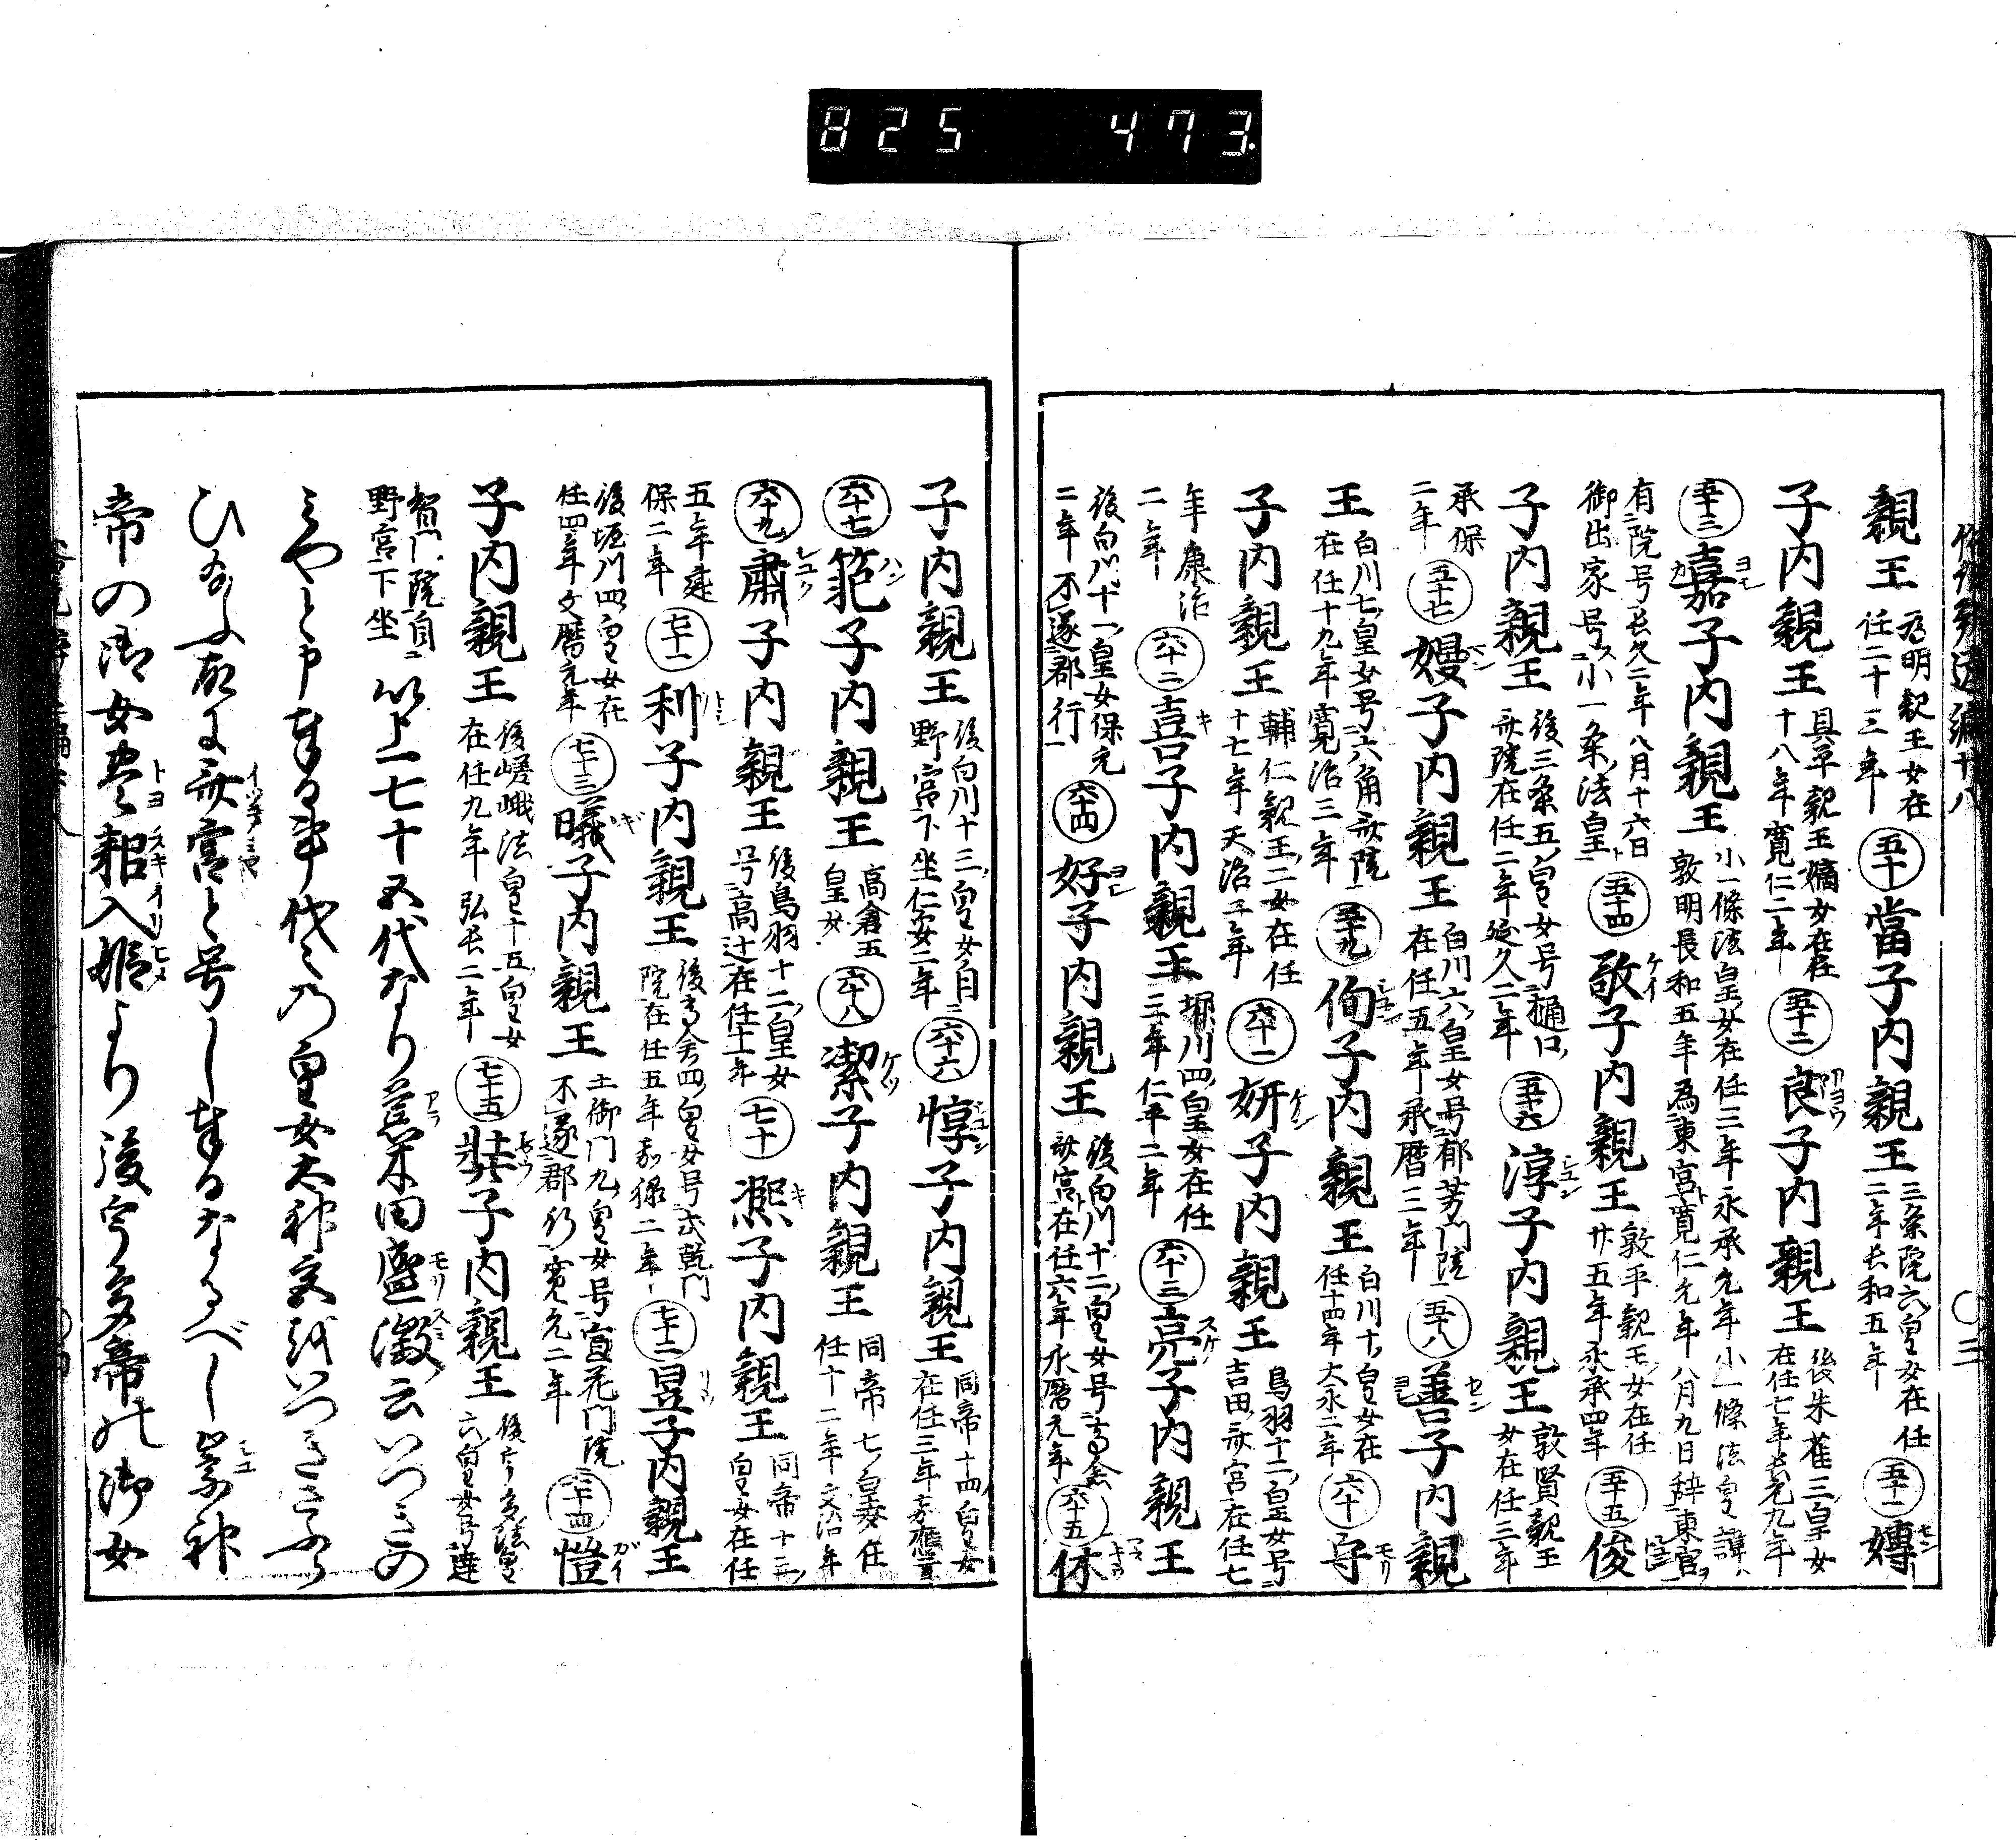 825 473
親王 為明親王女在任二十三年 五十 當子内親王 三条院六皇女在任二年長和五年 五十一 嫥
子内親王 具平親王嫡女在任十八年寛仁二年 五十二 良子内親王 後朱雀三皇女在任七年長元九年
五十三 嘉子内親王 小一條法皇女在任三年永承元年小一條法皇諱ハ敦明長和五年為東宮寛仁元年八月九日辞東宮ヲ
有院号長久二年八月十六日御出家号小一条法皇 五十四 敬子内親王 敦平親王女在任廿五年永承四年 五十五 俊
子内親王 後三条五皇女号樋口斎院在任二年延久二年 五十六 淳子内親王 敦賢親王女在任三年
承保二年 五十七 媞子内親王 白川六皇女号郁芳門院在任五年承暦三年 五十八 善子内親
王 白川七皇女号六角斎院在任十九年寛治三年 五十九 恂子内親王 白川十皇女在任十四年大永二年 六十 守
子内親王 輔仁親王二女在任十七年天治二年 六十一 妍子内親王 鳥羽十二皇女号吉田斎宮在任七
年康治二年 六十二 喜子内親王 堀川四皇女在任三年仁平二年 六十三 亮子内親王
後白川十一皇女保元二年不遂郡行 六十四 好子内親王 後白川十二皇女号高倉斎宮在任六年永暦元年 六十五 休
子内親王 後白川十三皇女自野宮下坐仁安二年 六十六 惇子内親王 同帝十四皇女在任三年嘉應
六十七 範子内親王 高倉五皇女 六十八 潔子内親王 同帝七皇女任任十二年文治年
六十九 肅子内親王 後鳥羽十二皇女号高辻在任十二年 七十 熈子内親王 同帝十三皇女在任
五年建保二年 七十一 利子内親王 後高倉四皇女号式乾門院在任五年嘉禄二年 七十二 昱子内親王
後堀川四皇女在任四年文暦元年 七十三 曦子内親王 土御門九皇女号宣花門院不遂郡行寛元二年 七十四 愷
子内親王 後嵯峨法皇十五皇女在任九年弘長二年 七十五 奘子内親王 後宇多法皇六皇女号達
智門院自野宮下坐 以上七十五代なり荒木田盛澂云いつきの
みやと申奉る事代々の皇女太神宮に
ひ給ふ故に斎宮と号し奉るなるべし崇神
帝の御女豊耜入姫より後宇多帝の御女